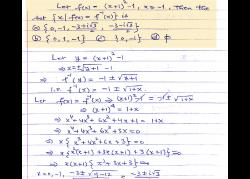 f(x) = (x+1)² -1, x≥-1, then the
set {x | f(x) = f⁻¹(x)} is
(a) {0, -1, (-3+i√3)/2, (-3-i√3)/2}
(b) {0, 1, -1} (c) {0, -1} (d) φ
Let y = (x+1)² -1
⇒ x = ±√(y+1) -1
⇒ f⁻¹(y) = -1 ± √(y+1)
i.e. f⁻¹(x) = -1 ± √(1+x)
Let f(x) = f⁻¹(x) ⇒ (x+1)² -1 = -1 ± √(1+x)
⇒ (x+1)⁴ = 1+x
⇒ x⁴+4x³+6x²+4x+1 = 1+x
⇒ x⁴+4x³+6x²+3x = 0
⇒ x{x³+4x²+6x+3} = 0
⇒ x{x²(x+1)+3x(x+1)+3(x+1)} = 0
⇒ x(x+1){x²+3x+3} = 0
x = 0, -1, (-3±√(9-12))/2 = (-3±i√3)/2